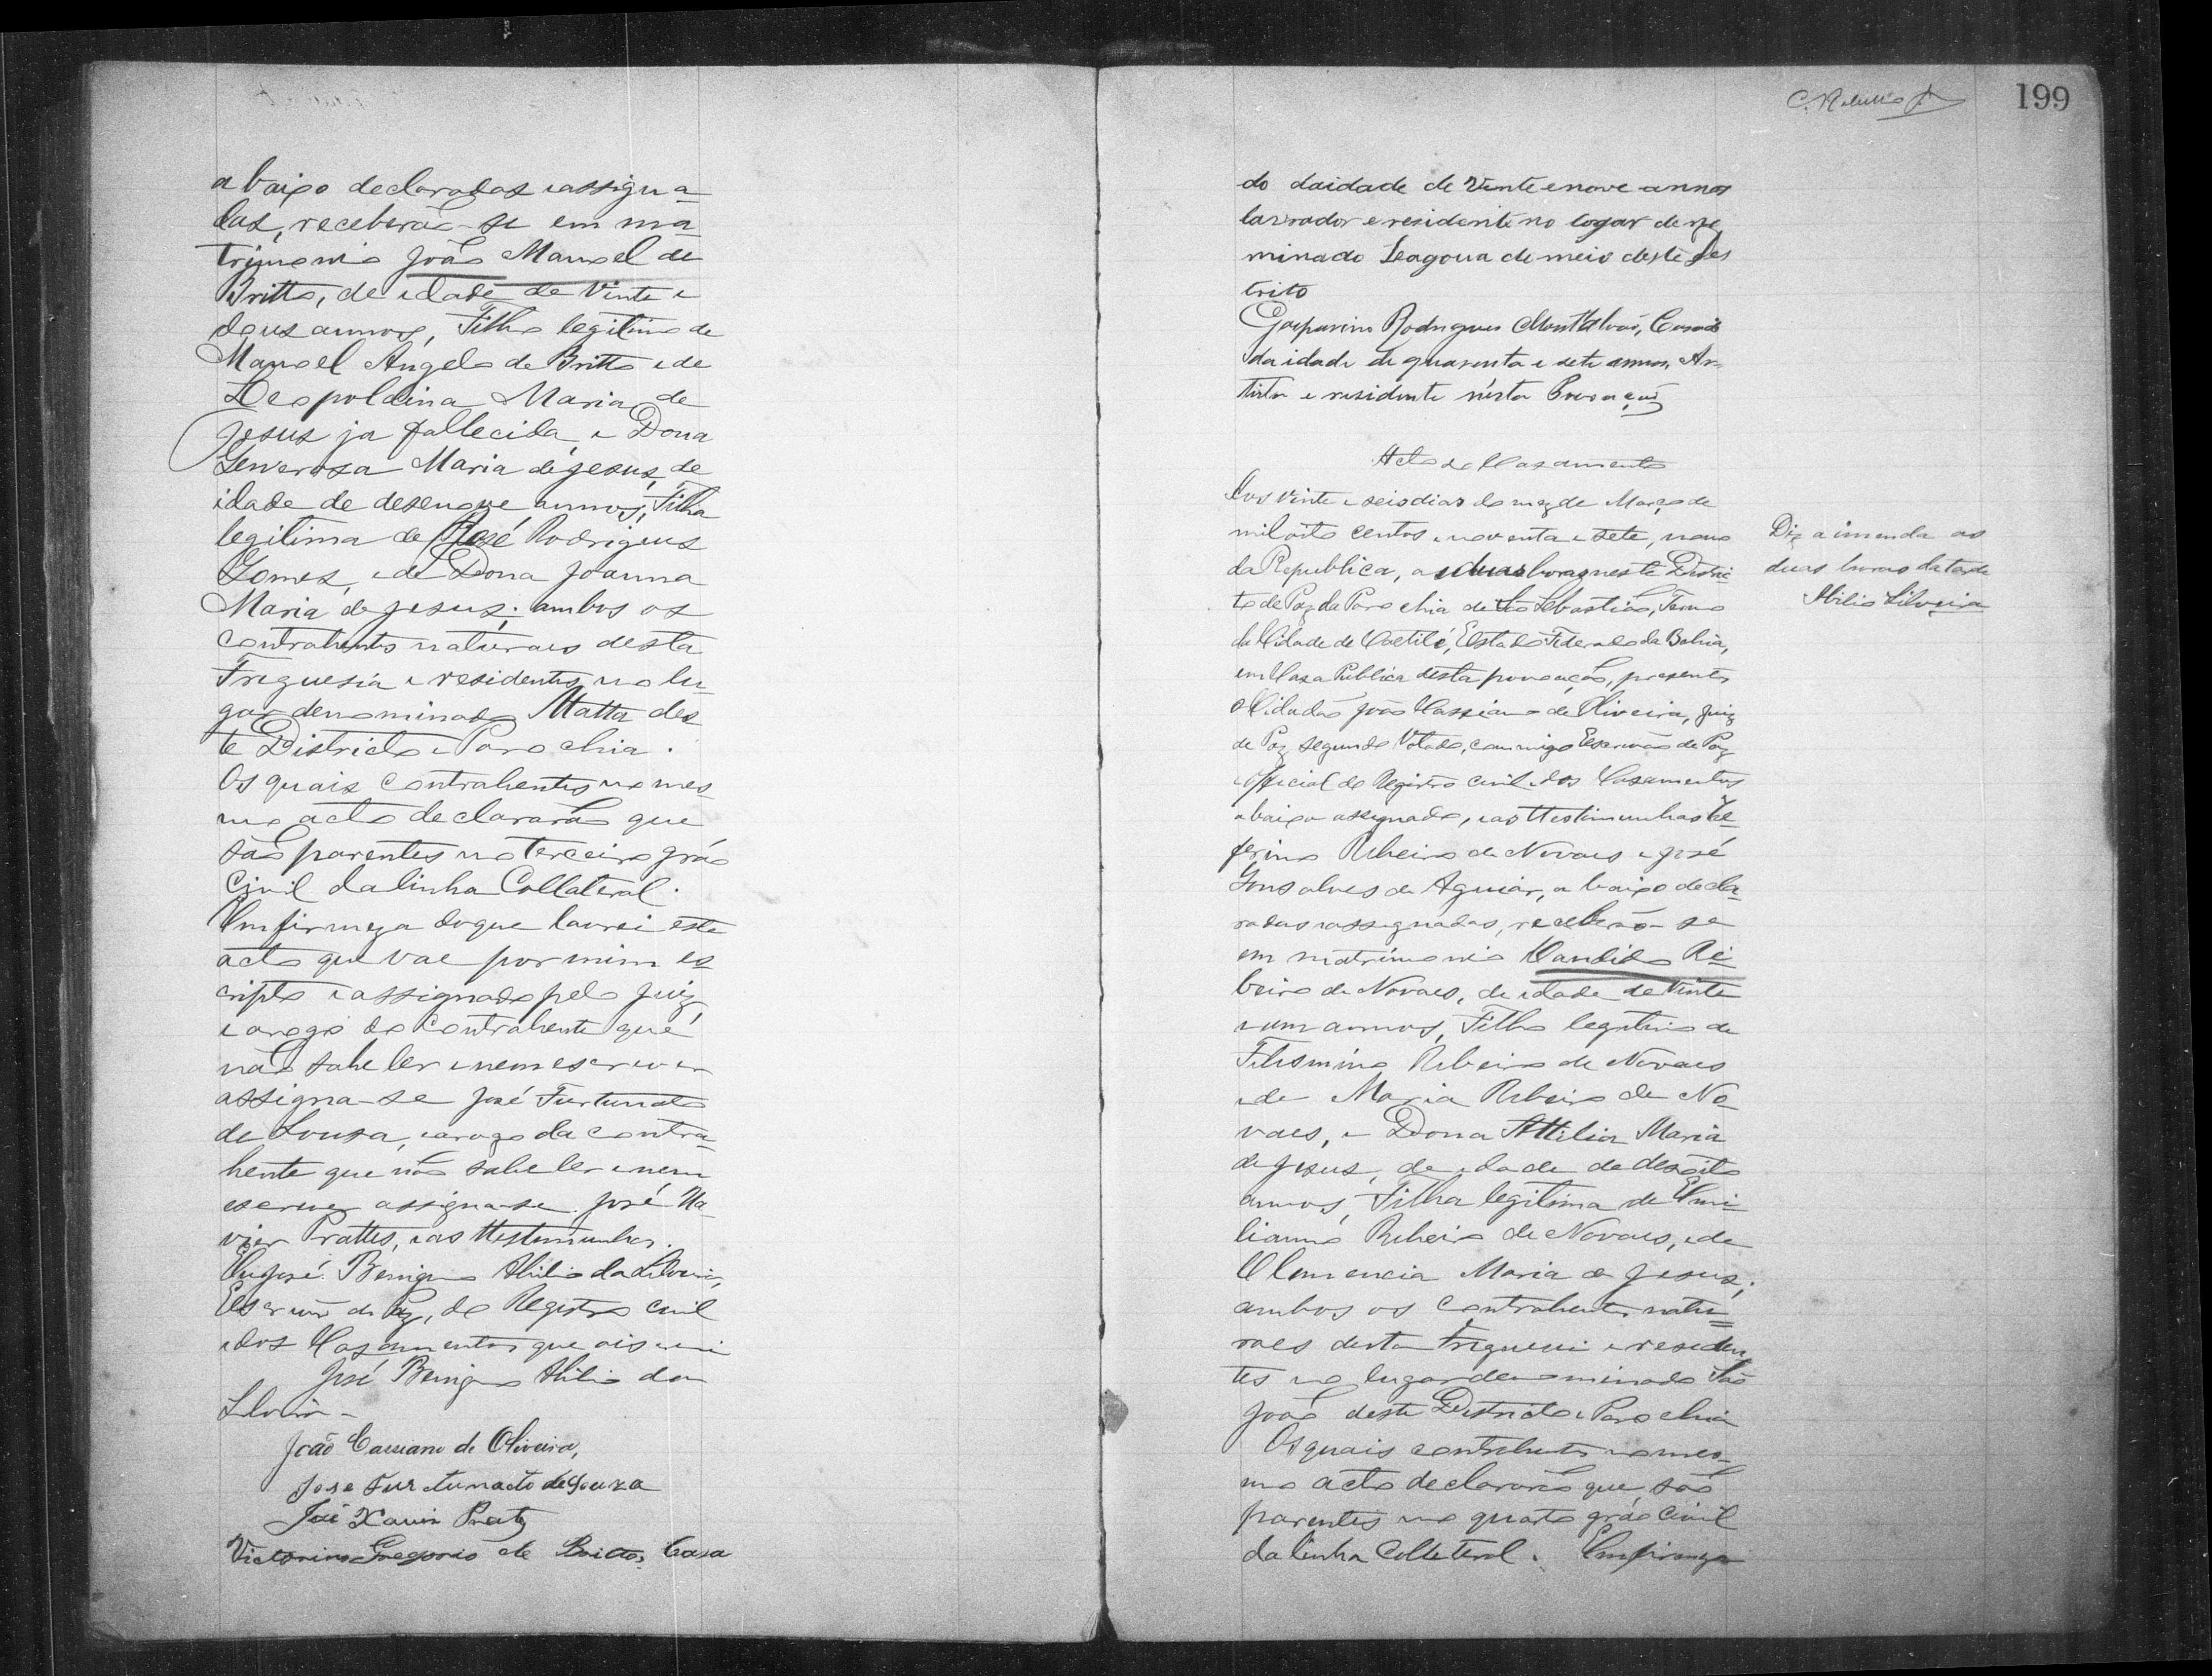 abaixo declaradas e assigna-
das, receberão-se em ma-
trimonio João Manoel de
Britto, de idade de Vinte e
dous annos, Filho legitimo de
Manoel Angelo de Britto e de
Leopoldina Maria de
Jesus ja fallecida, e Dona
Generosa Maria de Jesus, de
idade de desenove annos, Filha
legitima de José Rodrigues
Gomes, e de Dona Joanna
Maria de Jesus; ambos os
contrahentes naturaes desta
Freguesia e residentes no lu-
gar denominado Matta des-
te Districto e Parochia.
Os quais contrahentes no mes-
mo acto declararão que
são parentes no terceiro gráo
Civil da linha Collateral.
Em firmeza do que lavrei este
acto que vae por mim es-
cripto e assignado pelo Juiz,
e arogo do Contrahente que
não sabe ler e nem escrever
assigna-se José Furtunato
de Souza, e arogo da contra-
hente que não sabe ler e nem
escrever assigna-se José Xa-
vier Prattes, e as Testimunhas.
Eu José Benigno Abilio da Silveira,
Escrivão de Paz, do Registro civil
e dos Casamentos que o iscrevi
José Benigno Abilio da
Silveira
João Cassiano de Oliveira,
Jose Furtunacto de Souza
José Xavier Prates
Victorino Gregorio de Britto, Casa
C. Rebello 199
do da idade de Vinte e nove annos
lavrador e residente no logar deno
minado Leagoua de meio deste Des
trito
Gasparino Rodrigues Monthalvão, Casado
da idade de quarenta e sete annos, Ar-
tista e residente nésta Povoação
Acto de Casamento
Aos vinte e seis dias do mez de Março de
mil oito centos e noventa e sete, nono
da Republica, as duas horas neste Distric-
to de Paz da Parochia de São Sebastião, Termo
da Cidade de Caetité, Estado Federado da Bahia,
em Casa Publica desta povoação, presentes
o Cidadão João Cassiano de Oliveira, Juiz
de Paz segundo Votado, commigo Escrivão de Paz
e official do Registro civil e dos Casamentos
abaixo assignado, e as Testimunhas Ze-
ferino Ribeiro de Novaes e José
Gonsalves de Aguiar, abaixo decla-
radas e assignadas, receberão-se
em matrimonio Candido Ri-
beiro de Novaes, de idade de Vinte
e um annos, Filho legitimo de
Felismino Ribeiro de Novaes
e de Maria Ribeiro de No-
vaes, e Dona Attilia Maria
de Jesus, de idade de desoito
annos, Filha legitima de Emi-
lianno Ribeiro de Novaes, e de
Clemencia Maria de Jesus;
ambos os contrahentes natu-
raes desta Freguesia e residen
tes no lugar denominado São
João deste Districto e Parochia
Os quais contrahentes no mes-
mo acto declararão que são
parentes no quarto gráo Civil
da linha Collateral. Em firmeza
Diz a imenda as
duas horas da tarde
Abilio Silveira